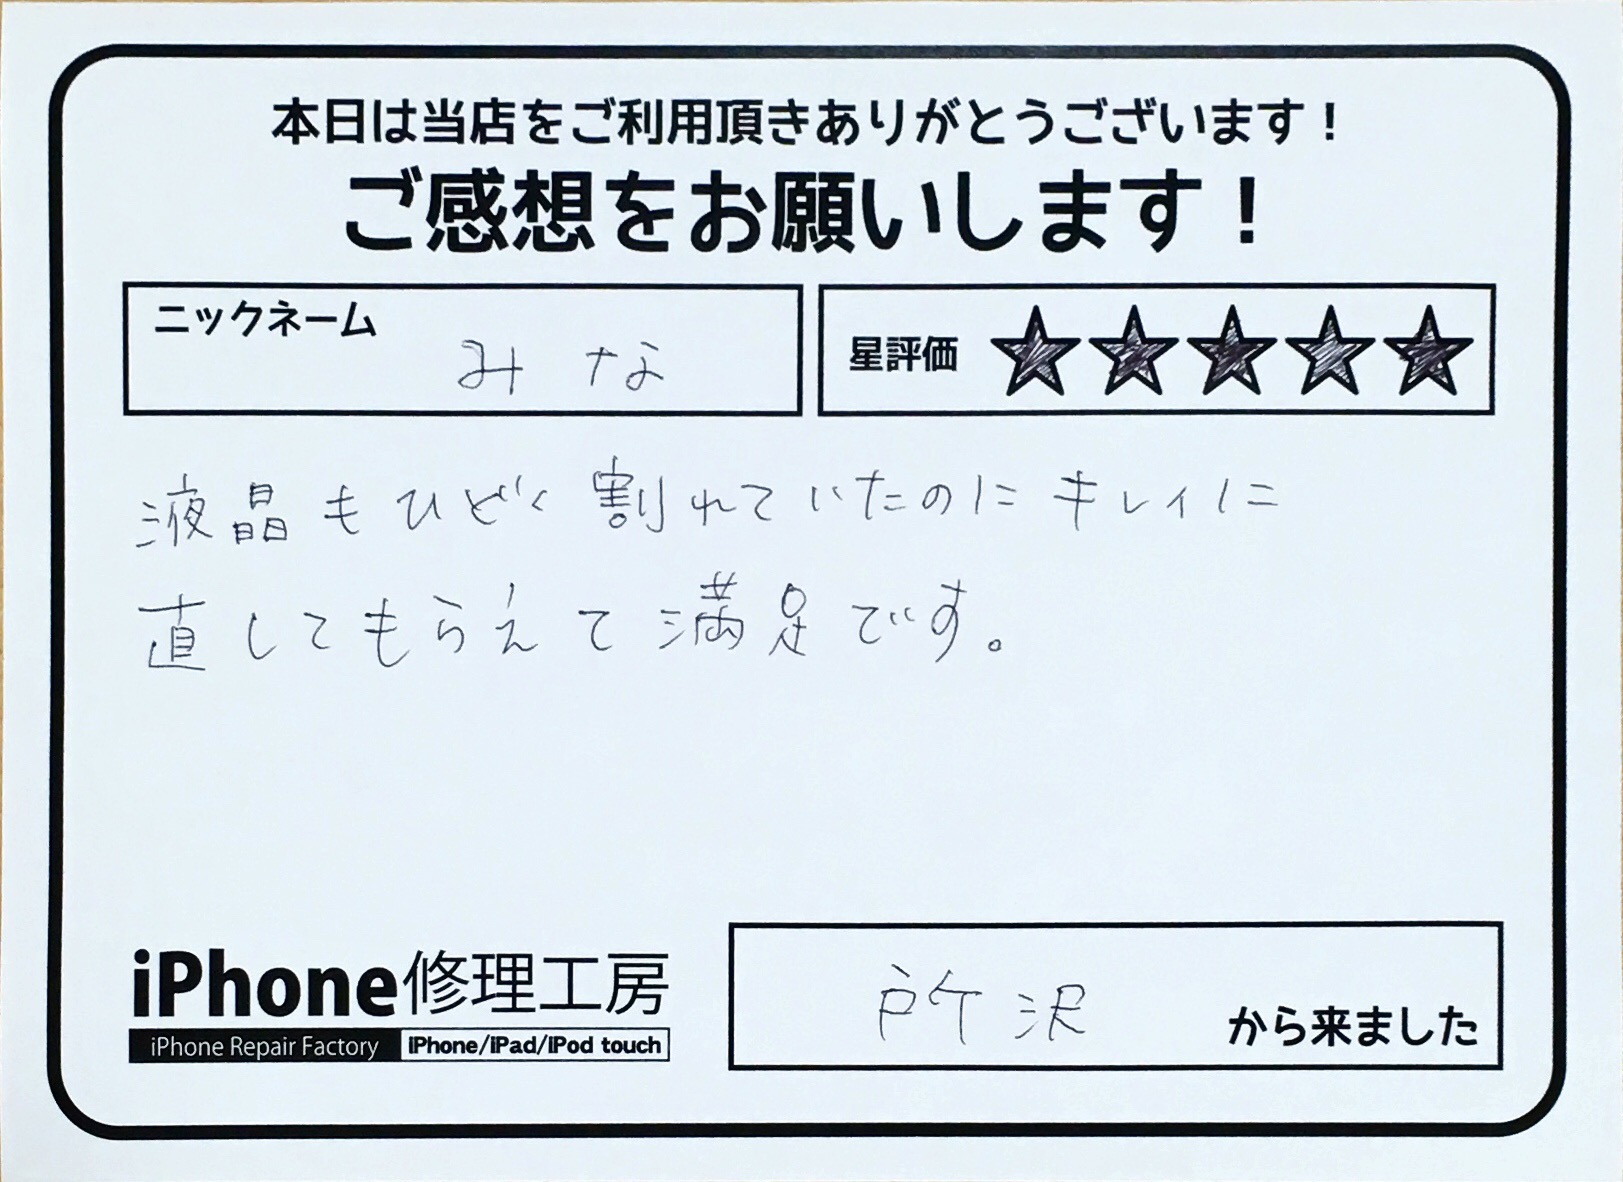 本日は当店をご利用頂きありがとうございます！
ご感想をお願いします！
ニックネーム みな
星評価 ★★★★★
液晶もひどく割れていたのにキレイに
直してもらえて満足です。
iPhone修理工房
iPhone Repair Factory iPhone/iPad/iPod touch
所沢 から来ました